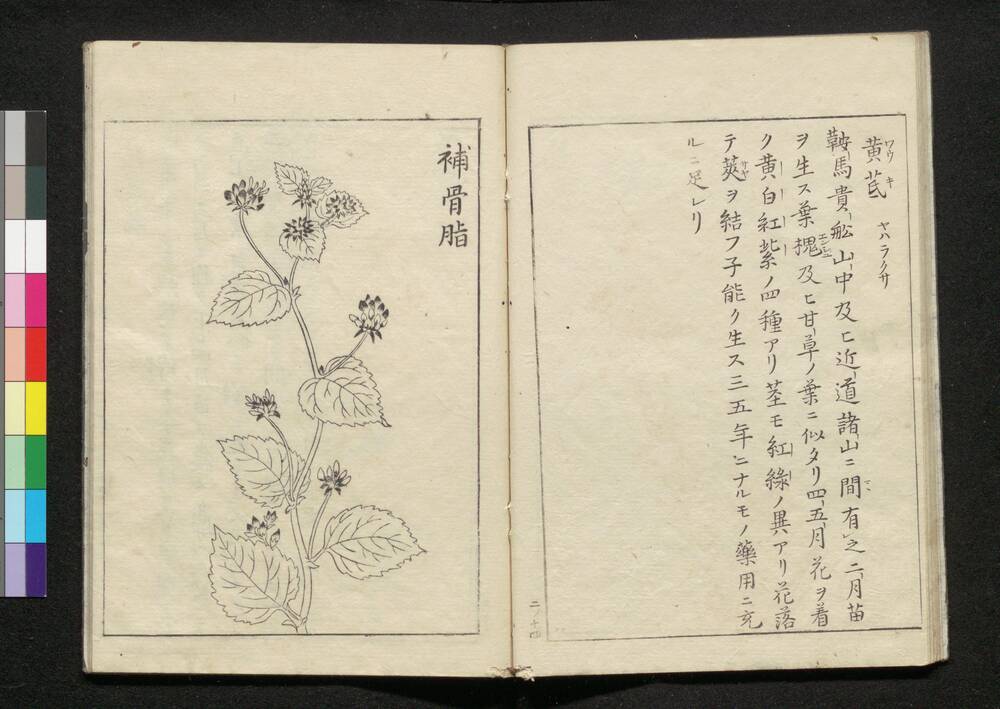 黄芪 ワウ キ ヤハラクサ
鞍馬貴舩山中及ヒ近道諸山ニ間有之二月苗
ヲ生ス葉槐及ヒ甘草ノ葉ニ似タリ四五月花ヲ着
ク黄白紅紫ノ四種アリ茎モ紅綠ノ異アリ花落
テ莢ヲ結フ子能ク生ス三五年ニナルモノ藥用ニ充
ルニ足レリ
補骨脂
二ノ十四